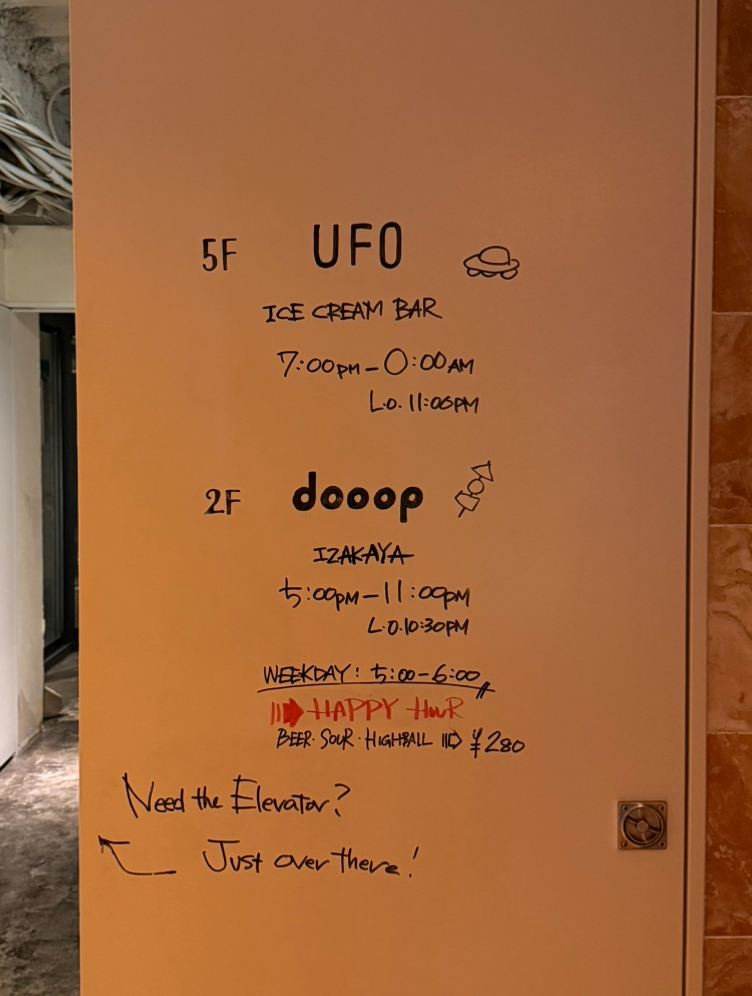 5F UFO
ICE CREAM BAR
7:00PM-0:00AM
L.O. 11:00PM
2F dooop
IZAKAYA
5:00PM-11:00PM
L.O.10:30PM
WEEKDAY: 5:00-6:00
HAPPY HOUR
BEER・SOUR・HIGHBALL ⇨ ¥280
Need the Elevator?
Just over there!